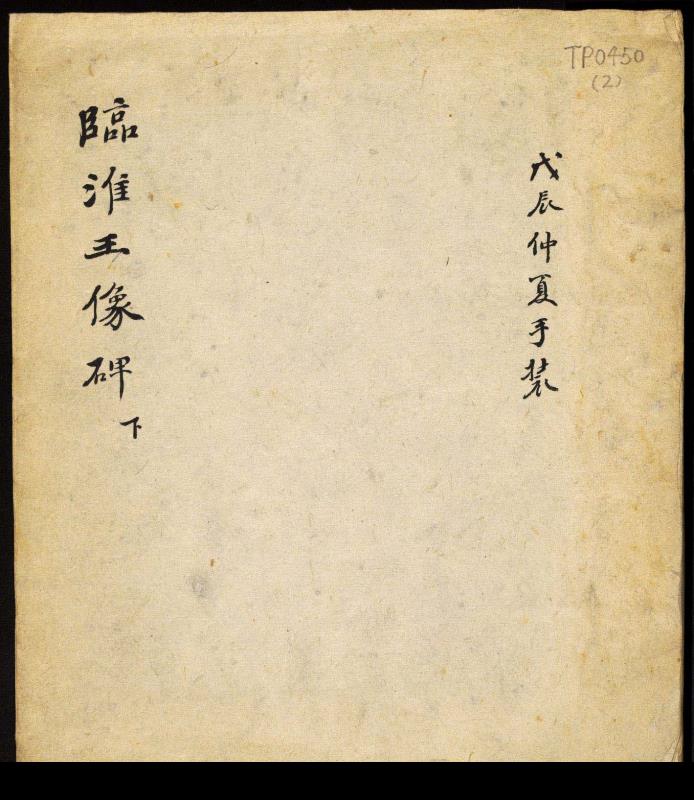 TP0450
(2)
戊辰仲夏手装
臨淮王像碑下